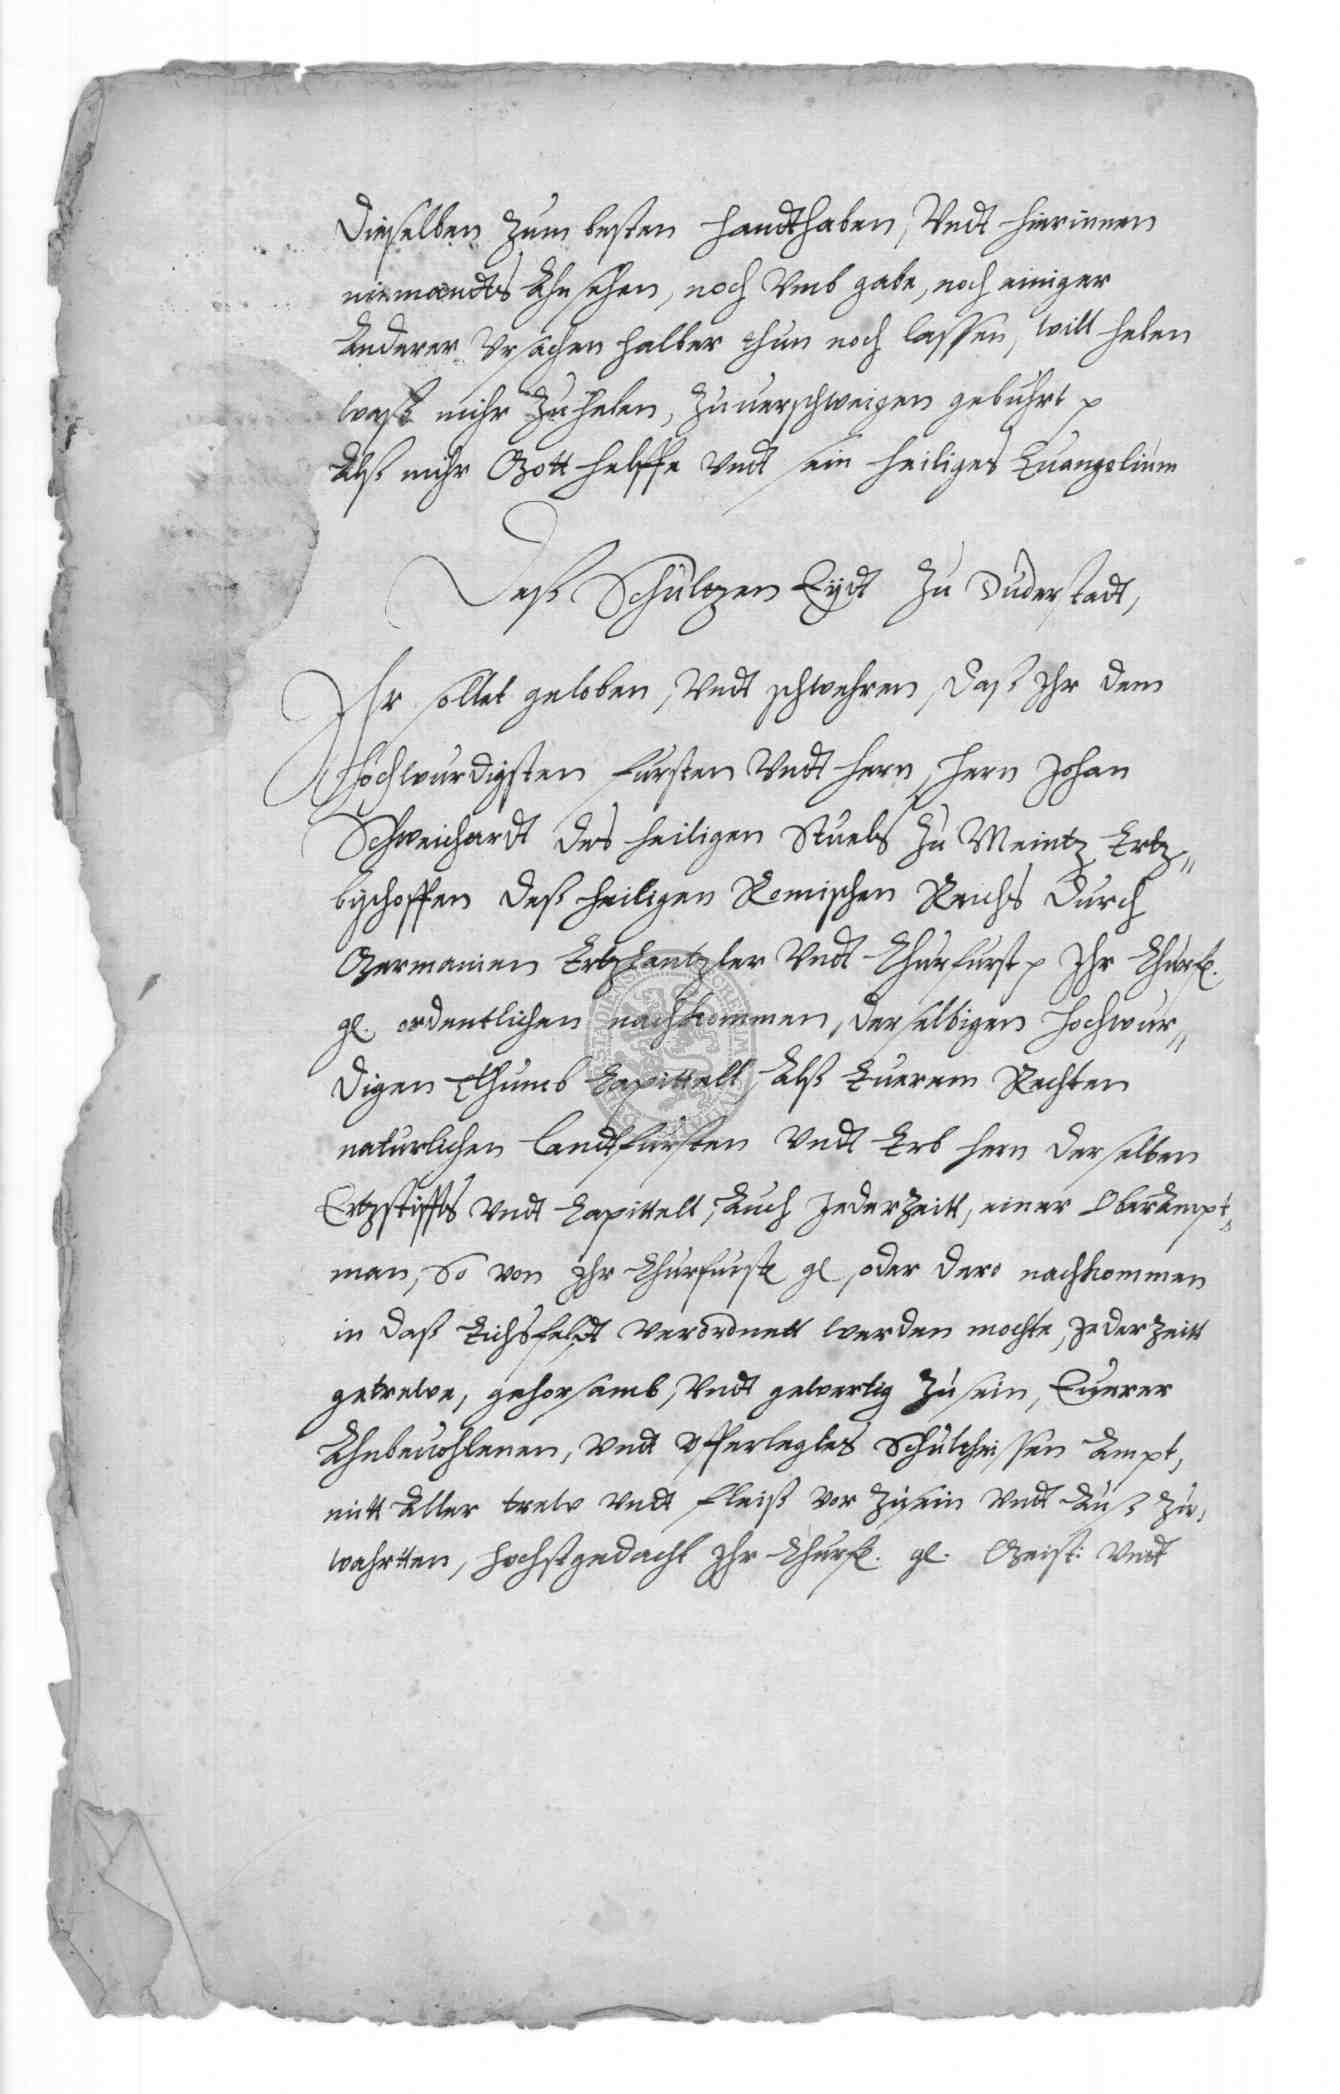 Dieselben zum besten handthaben, Vndt hierinnen
niemandts Ahnsehen, noch Vmb gabe, noch einiger
Anderer Vrsachen halber thun noch lassen, will helen
waß mihr zu helen, zuuerschweigen gebuhrt p
Alß mihr Gott helffe Vndt sein heiliges Euangelium
Deß Schultzen Eydt Zu Duderstadt,
Ihr sollet geloben, Vndt schwehren, Daß Ihr dem
Hochwurdigsten fursten Vndt hern, hern Johan
Schweichardt des heiligen Stuels Zu Meintz Ertz„
bischoffen deß heiligen Romischen Reichs durch
Germanien Ertzkantzler Vndt Churfurst p Ihr Churf.
gl. ordentlichen nachkommen, derselbigen hochwur„
digen Thumb Capittell, Alß Euerem Rechten
naturlichen Landtfursten Vndt Erb hern derselben
Ertzstiffts Vndt Capittell, Auch Jederzeitt, einer Oberampt„
man, So von Ihr Churfurst gl, oder dero nachkommen
in daß Eichsfeldt verordnett werden mochte, Jederzeitt
getrewe, gehorsamb, Vndt gewertig zu sein, Euerer
Ahnbeuohlenen, Vndt Vfferlegtes Schultheissen Ampt,
mitt Aller trew Vndt fleiß vor zu sein Vndt Auß zu,
wahrtten, hochstgedacht Ihr Churf. gl. Geist: Vndt